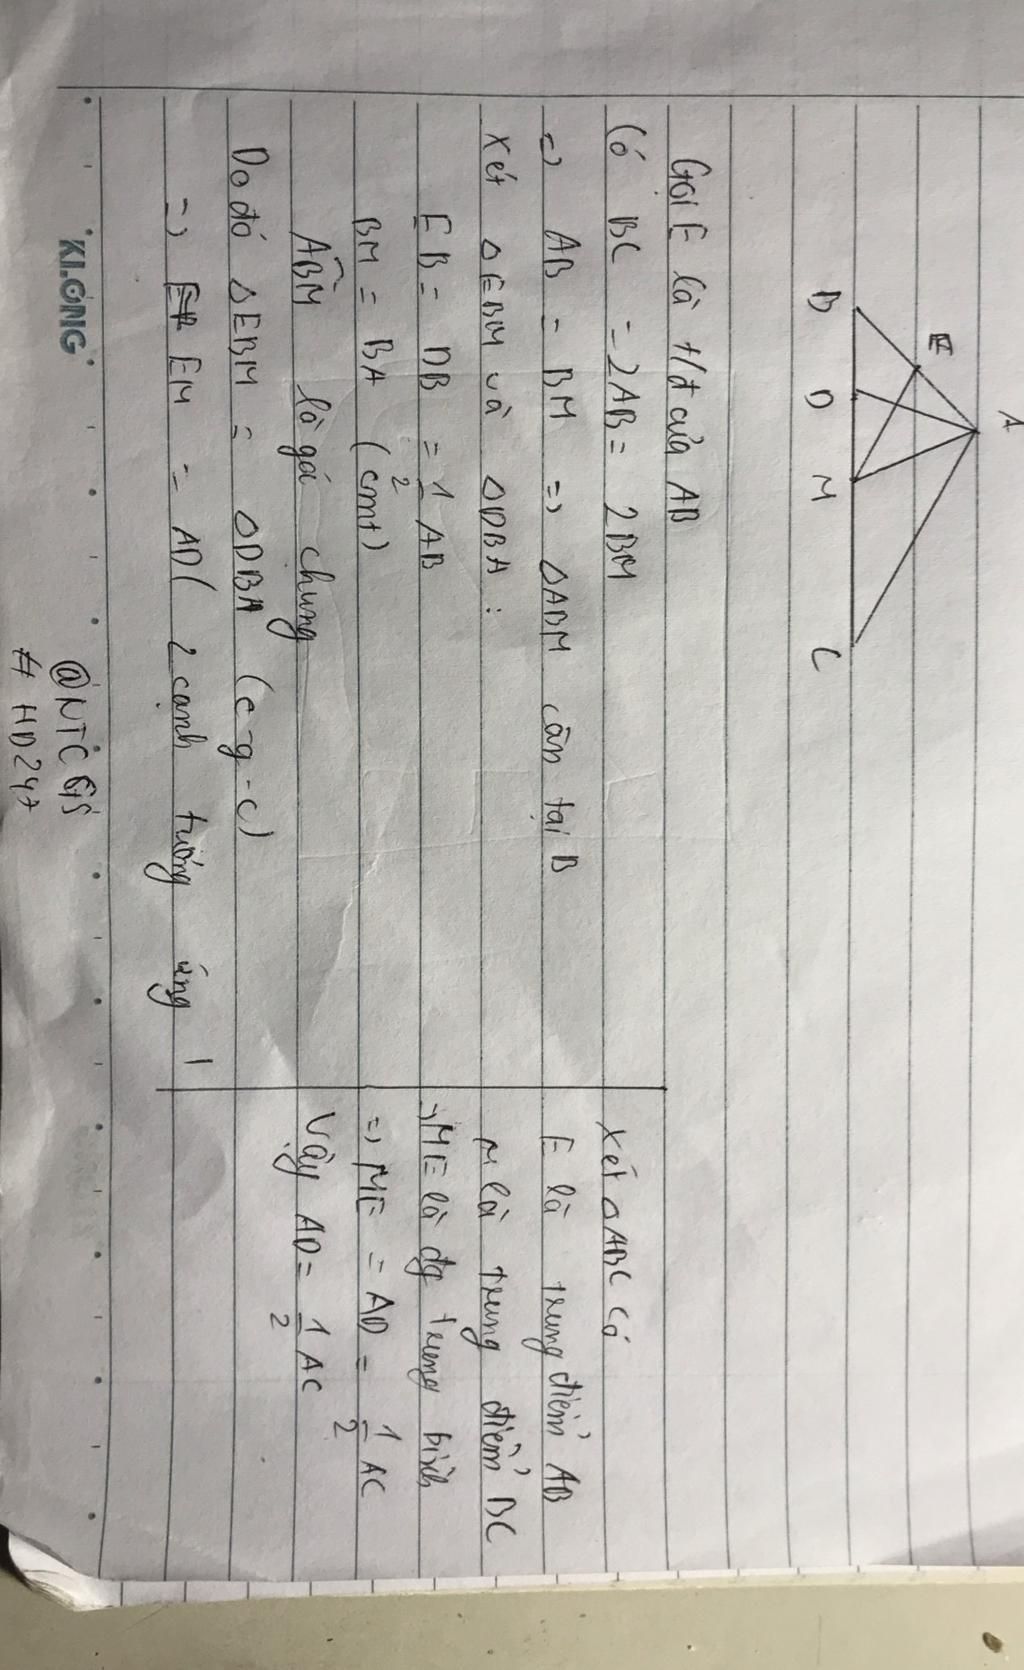 A
E
B D M C
Gọi E là t/đ của AB
Có BC = 2AB = 2BM
=> AB = BM => △ABM cân tại B
Xét △EBM và △DBA :
EB = DB = 1/2 AB
BM = BA (cmt)
ABM̂ là góc chung
Do đó △EBM = △DBA (c-g-c)
=> EM = AD ( 2 cạnh tướng ứng )
Xét △ABC có
E là trung điểm AB
M là trung điểm BC
=> ME là đg trung bình
=> ME = AD = 1/2 AC
Vậy AD = 1/2 AC
KLONG
@NTC GS
# HD247